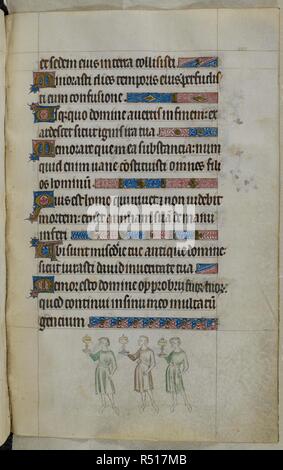 et sedem eius in terra collisisti
Minorasti dies temporis eius perfudis
ti eum confusione
Usquequo domine avertis in finem: ex
ardescet sicut ignis ira tua
Memorare que mea substancia: num
quid enim vane constituisti omnes fili
os hominum
Quis est homo qui vivet et non videbit
mortem: eruet animam suam de manu
inferi
Ubi sunt misericordie tue antique domine
sicut iurasti david in veritate tua
Memor esto domine opprobrii servorum tuorum
quod continui in sinu meo multarum
gencium
alamy
Image ID: R517MB
www.alamy.com